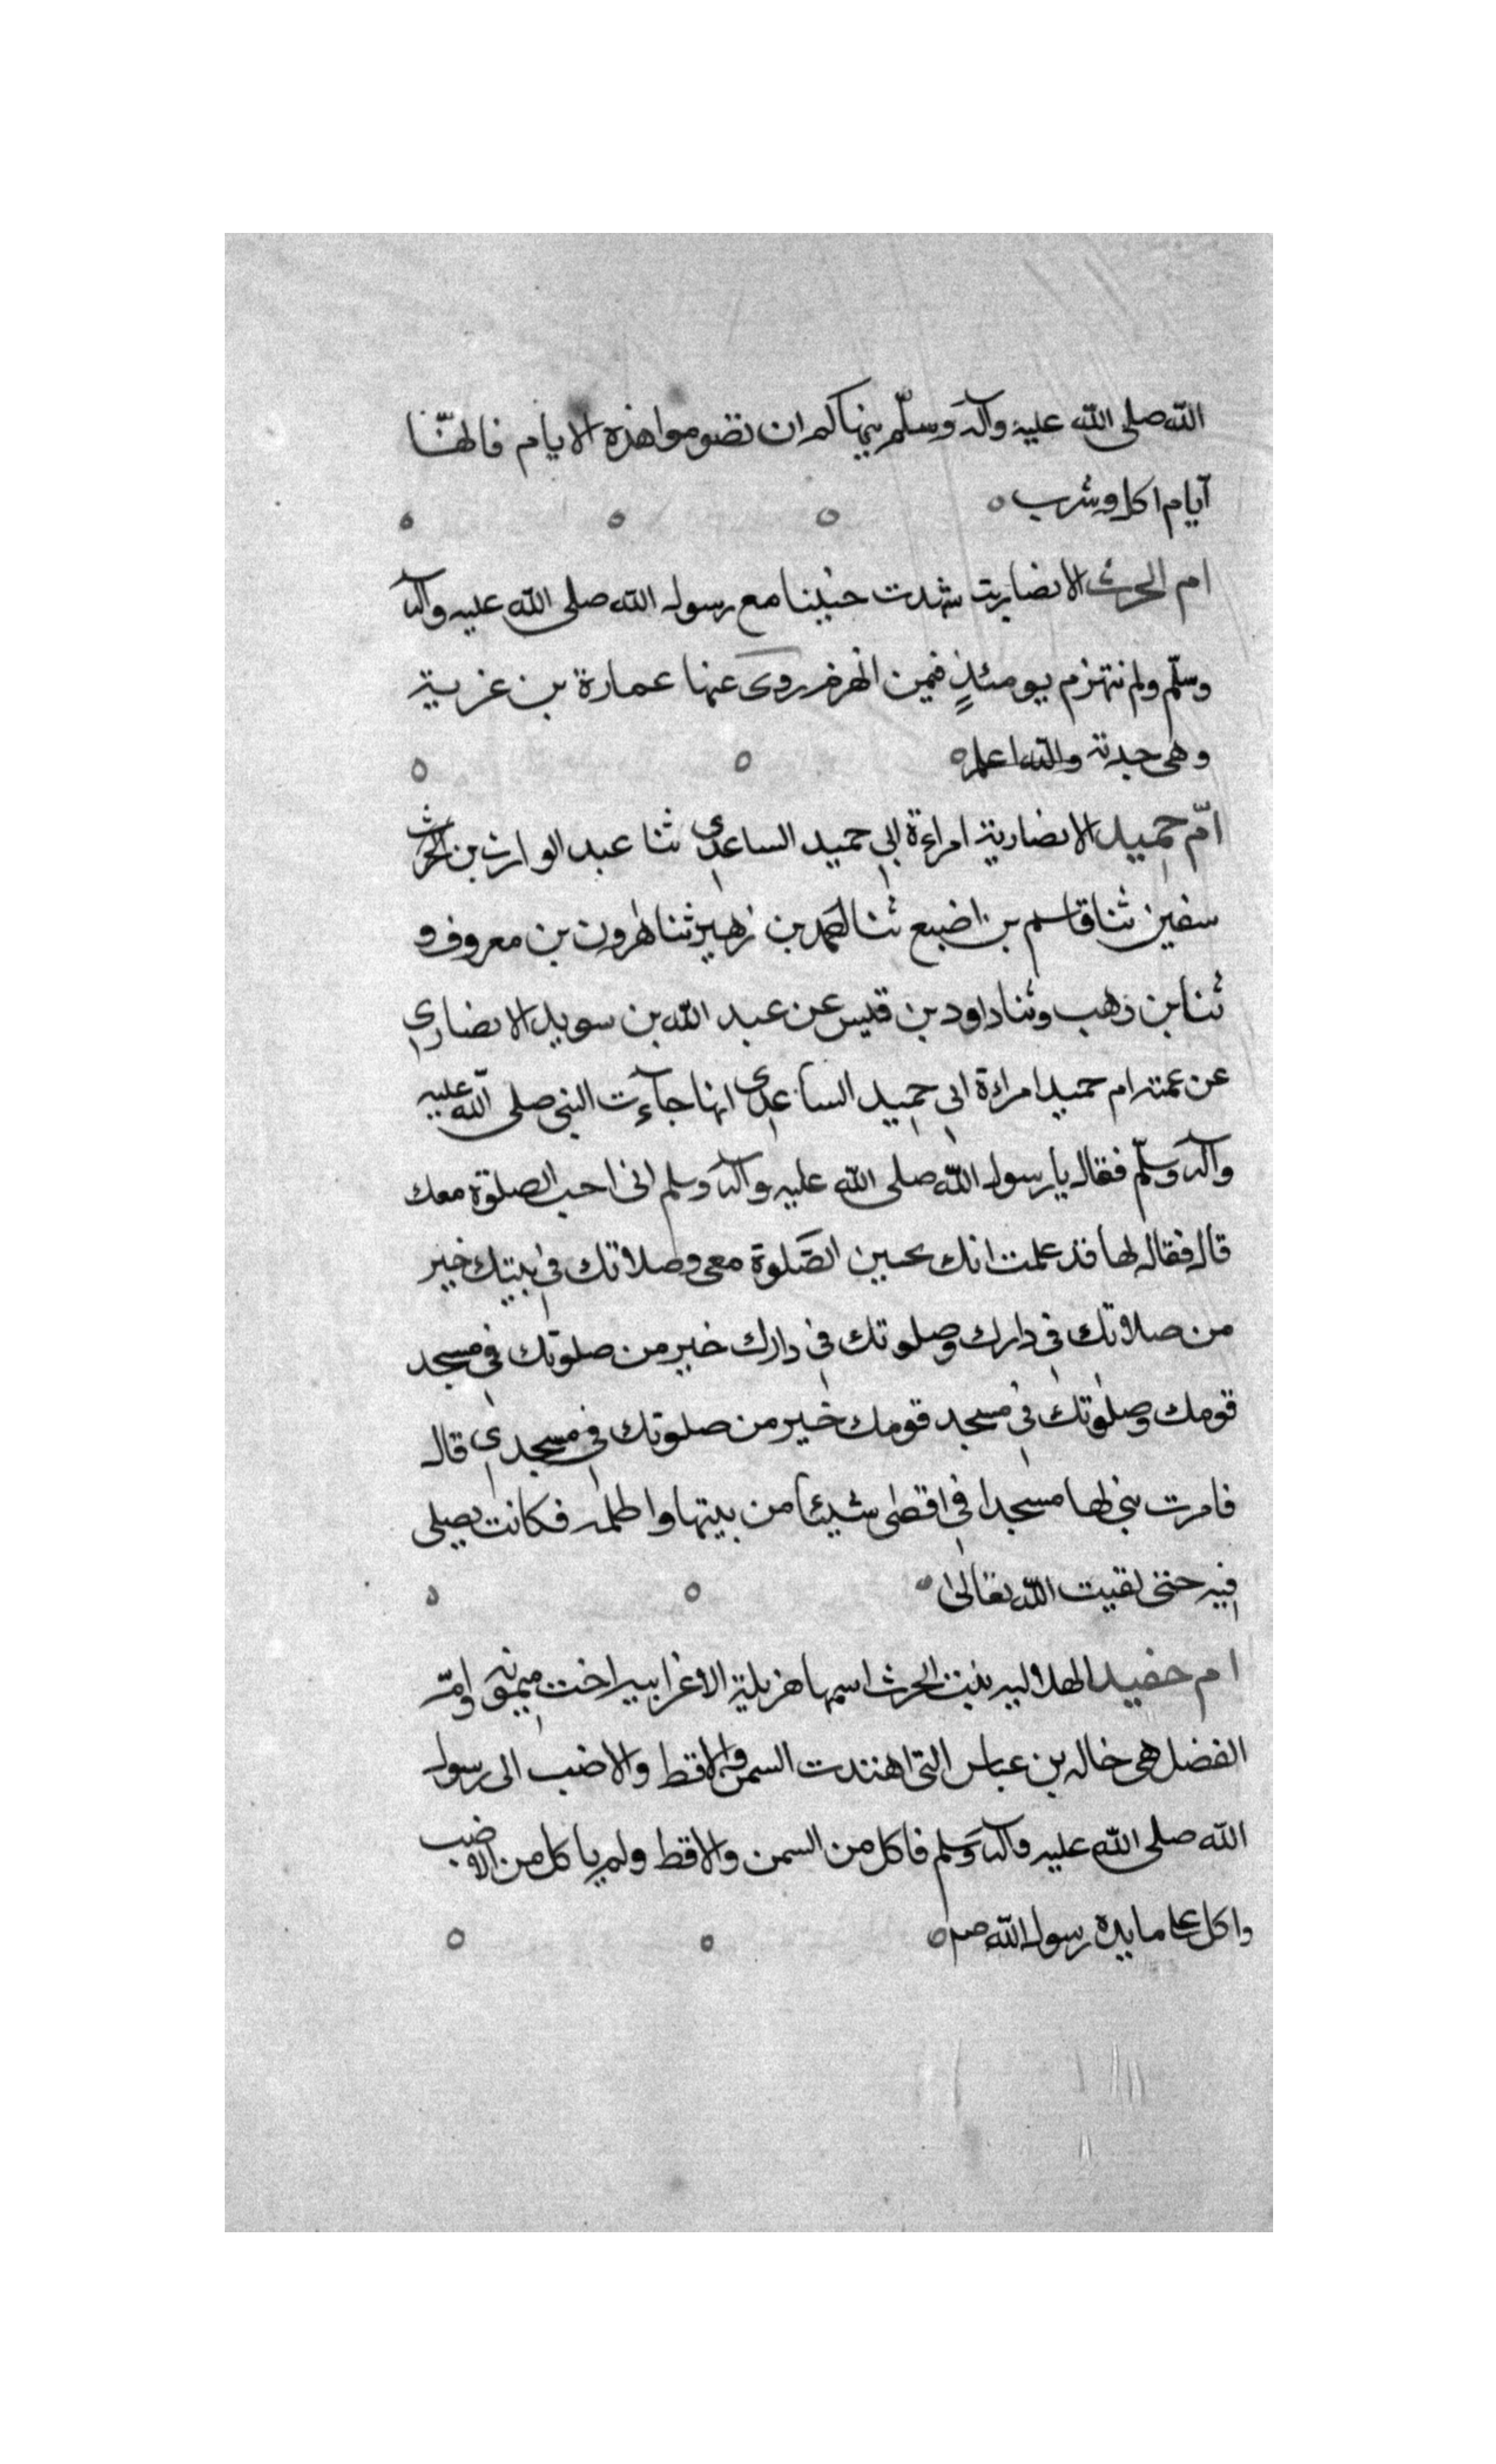 الله صلى الله عليه وآله وسلّم ينهاكم ان تصوموا هذه الايام فانهنّا
آيام اكل وشرب ٥ ٥ ٥ ٥
ام الحرث الانصاريت شهدت حنينا مع رسول الله صلى الله عليه وآله
وسلّم ولم تنهزم يومئذٍ فيمن انهزم روى عنها عمارة بن غزية
وهى جدته والله اعلم ٥ ٥ ٥
امّ حميد الانصارية امراءة ابي حميد الساعدي ثنا عبد الوارث بن الحرث
سفين ثنا قاسم بن اضبع ثنا احمد بن زهير ثنا هرون بن معروف و
ثنا بن وهب وثنا داود بن قيس عن عبد الله بن سويد الانصاري
عن عمته ام حميد امراءة ابي حميد الساعدي انها جاءت النبي صلى الله عليه
وآله وسلّم فقال يا رسول الله صلى الله عليه وآله وسلم انى احب الصلوة معك
قال فقال لها قد علمت انك تحبين الصّلوة معى وصلاتك في بيتك خير
من صلاتك في دارك وصلوتك في دارك خير من صلوتك في مسجد
قومك وصلوتك في مسجد قومك خير من صلوتك في مسجدي قال
فامرت بنى لها مسجدا في اقصى شيئا من بيتها واظلمه فكانت تصلى
فيه حتى لقيت الله تعالى ٥ ٥ ٥
ام حفيد الهلاليه بنت الحرث اسمها هزيلة الاعرابيه اخت ميمونه وامّ
الفضل هى خاله بن عباس التى اهتدت السمن والاقط والاضب الى رسول
الله صلى الله عليه وآله وسلم فاكل من السمن والاقط ولم ياكل من الاضب
واكل على مايده رسول الله صلم ٥ ٥ ٥